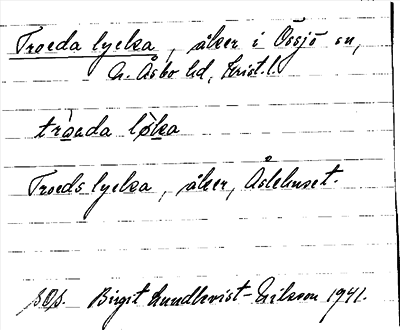 Troeda lycka, åker i Össjö sn,
N. Åsbo hd, Krist. l.
tròada løka
Troedslycka, åker, Åslehuset.
Birgit Lundkvist-Eriksson 1941.